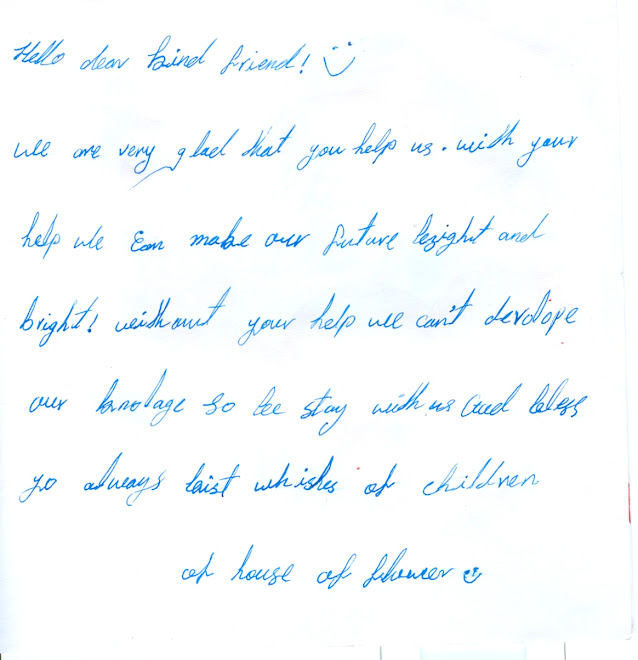 Hello dear kind friend!
we are very glad that you help us. with your
help we can make our future bezight and
bright! weithaut your help we can't devolope
our knolage so be stay with us God bless
yo always baist whishes of children
of house of flower